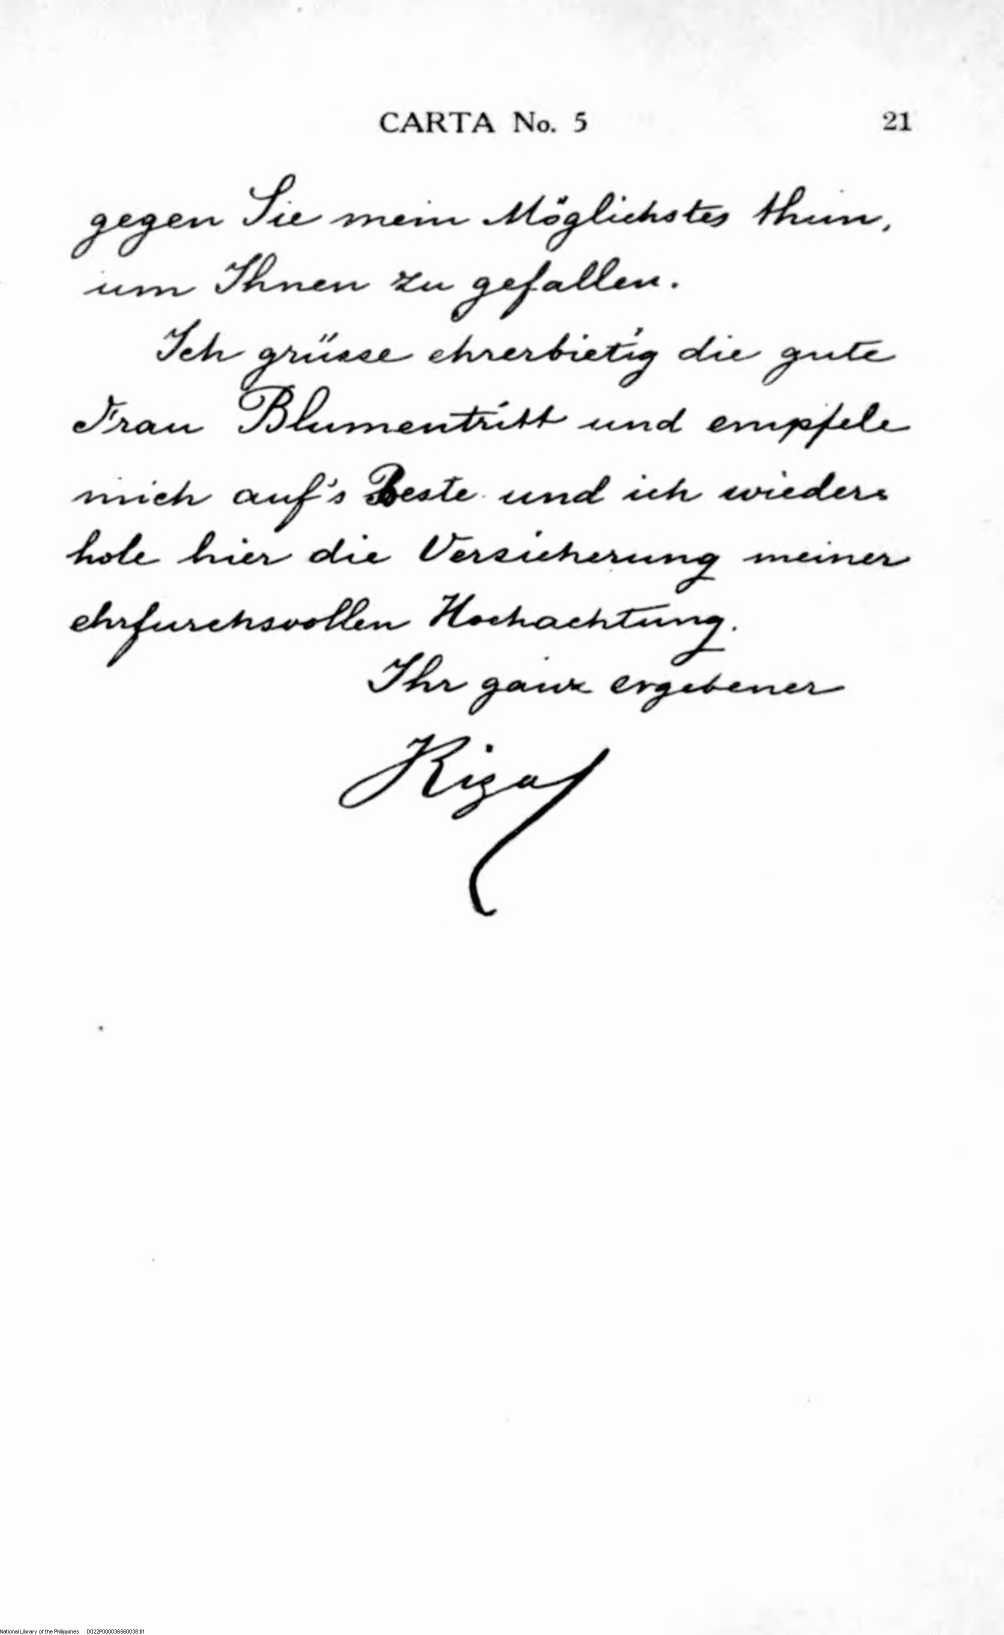 CARTA No. 5 21
gegen Sie mein Möglichstes thun,
um Ihnen zu gefallen.
Ich grüsse ehrerbietig die gute
Frau Blumentritt und empfele
mich auf's Beste und ich wieder=
hole hier die Versicherung meiner
ehrfurchsvollen Hochachtung.
Ihr ganz ergebener
Rizal
National Library of the Philippines